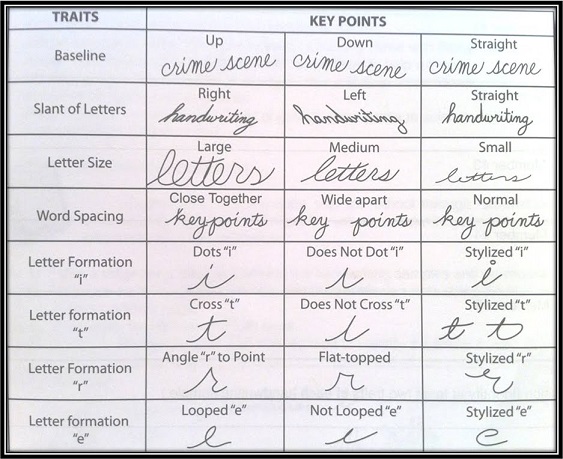 TRAITS KEY POINTS
Baseline
Up Down Straight
crime scene crime scene crime scene
Slant of Letters
Right Left Straight
handwriting handwriting handwriting
Letter Size
Large Medium Small
letters letters letters
Word Spacing
Close Together Wide apart Normal
key points key points key points
Letter Formation
"i"
Dots "i" Does Not Dot "i" Stylized "i"
i i i
Letter formation
"t"
Cross "t" Does Not Cross "t" Stylized "t"
t t t t
Letter Formation
"r"
Angle "r" to Point Flat-topped Stylized "r"
r r r
Letter formation
"e"
Looped "e" Not Looped "e" Stylized "e"
e e e